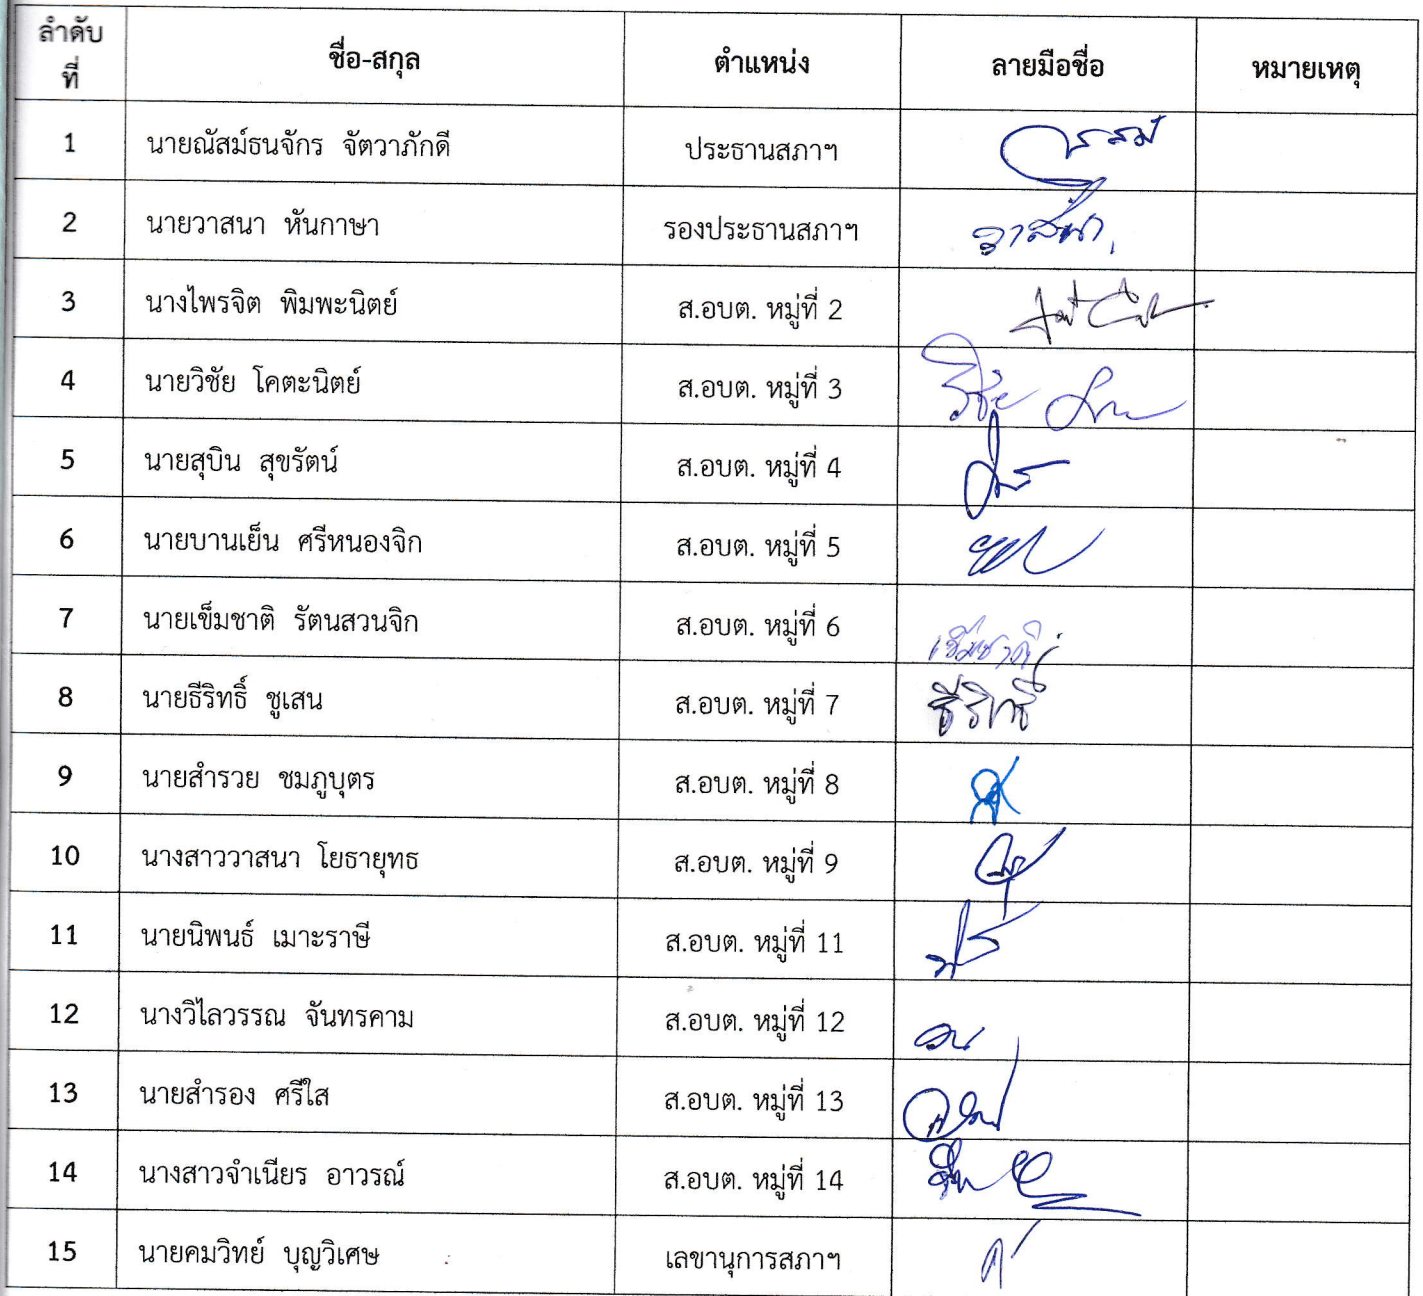 ลำดับที่ ชื่อ-สกุล ตำแหน่ง ลายมือชื่อ หมายเหตุ
1 นายณัสม์ธนจักร จัตวาภักดี ประธานสภาฯ
2 นายวาสนา หันกาษา รองประธานสภาฯ วาสนา
3 นางไพรจิต พิมพะนิตย์ ส.อบต. หมู่ที่ 2
4 นายวิชัย โคตะนิตย์ ส.อบต. หมู่ที่ 3 วิชัย
5 นายสุบิน สุขรัตน์ ส.อบต. หมู่ที่ 4
6 นายบานเย็น ศรีหนองจิก ส.อบต. หมู่ที่ 5
7 นายเข็มชาติ รัตนสวนจิก ส.อบต. หมู่ที่ 6 เข็มชาติ
8 นายธีริทธิ์ ชูเสน ส.อบต. หมู่ที่ 7 ธีริทธิ์
9 นายสำรวย ชมภูบุตร ส.อบต. หมู่ที่ 8
10 นางสาววาสนา โยธายุทธ ส.อบต. หมู่ที่ 9
11 นายนิพนธ์ เมาะราษี ส.อบต. หมู่ที่ 11
12 นางวิไลวรรณ จันทรคาม ส.อบต. หมู่ที่ 12
13 นายสำรอง ศรีใส ส.อบต. หมู่ที่ 13
14 นางสาวจำเนียร อาวรณ์ ส.อบต. หมู่ที่ 14
15 นายคมวิทย์ บุญวิเศษ เลขานุการสภาฯ